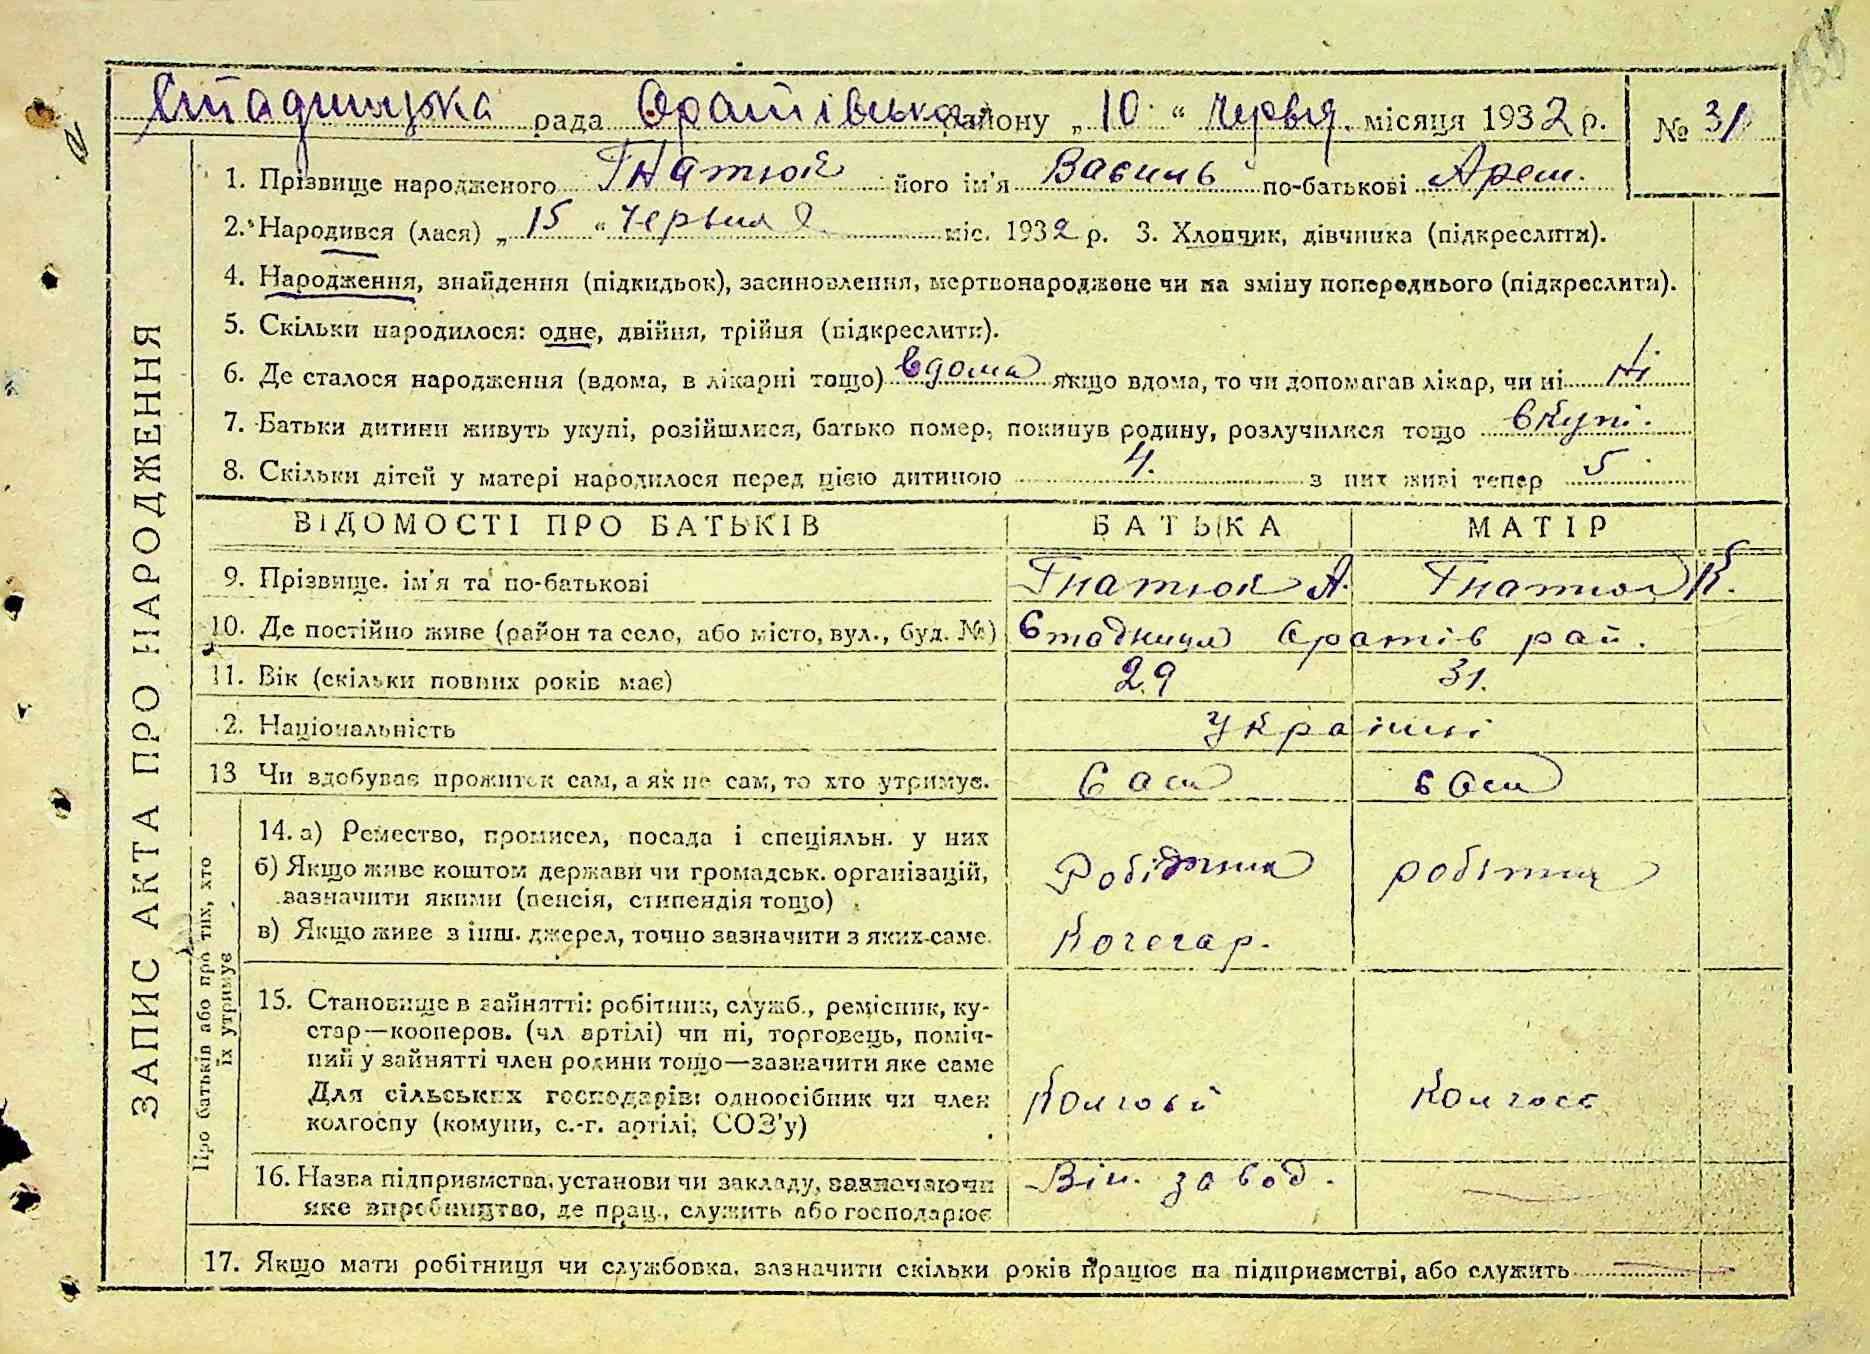 Стадницька рада Оратівська району „ 10 “ червня місяця 1932 р. № 31
1. Прізвище народженого Гнатюк його ім'я Василь по-батькові Арет.
2. Народився (лася) „ 15 “ червня міс. 1932 р. 3. Хлопчик, дівчинка (підкреслити).
4. Народження, знайдення (підкидьок), засиновлення, мертвонароджене чи на зміну попереднього (підкреслити).
5. Скільки народилося: одне, двійня, трійня (підкреслити).
6. Де сталося народження (вдома, в лікарні тощо) вдома якщо вдома, то чи допомагав лікар, чи ні Ні
7. Батьки дитини живуть укупі, розійшлися, батько помер, покинув родину, розлучилися тощо вкупі.
8. Скільки дітей у матері народилося перед цією дитиною 4. з них живі тепер 5
ЗАПИС АКТА ПРО НАРОДЖЕННЯ
ВІДОМОСТІ ПРО БАТЬКІВ БАТЬКА МАТІР
9. Прізвище. ім'я та по-батькові Гнатюк А. Гнатюк К.
10. Де постійно живе (район та село, або місто, вул., буд. №) Стадниця Оратів рай.
11. Вік (скільки повних років має) 29 31.
2. Національність Українці
13 Чи здобуває прожиток сам, а як не сам, то хто утримує. Сам сам
Про батьків або про тих, хто їх утримує
14. а) Ремество, промисел, посада і спеціяльн. у них
б) Якщо живе коштом держави чи громадськ. організацій, зазначити якими (пенсія, стипендія тощо) Робітник робітниц
в) Якщо живе з інш. джерел, точно зазначити з яких-саме. Кочегар.
15. Становище в зайнятті: робітник, служб., ремісник, ку-
стар—кооперов. (чл артілі) чи ні, торговець, поміч-
ний у зайнятті член родини тощо—зазначити яке саме
Для сільських господарів: одноосібник чи член Колгосп Колгосп
колгоспу (комуни, с.-г. артілі, СОЗ'у)
16. Назва підприємства, установи чи закладу, зазначаючи Він. завод.
яке виробництво, де прац., служить або господарює
17. Якщо мати робітниця чи службовка, зазначити скільки років працює на підприємстві, або служить